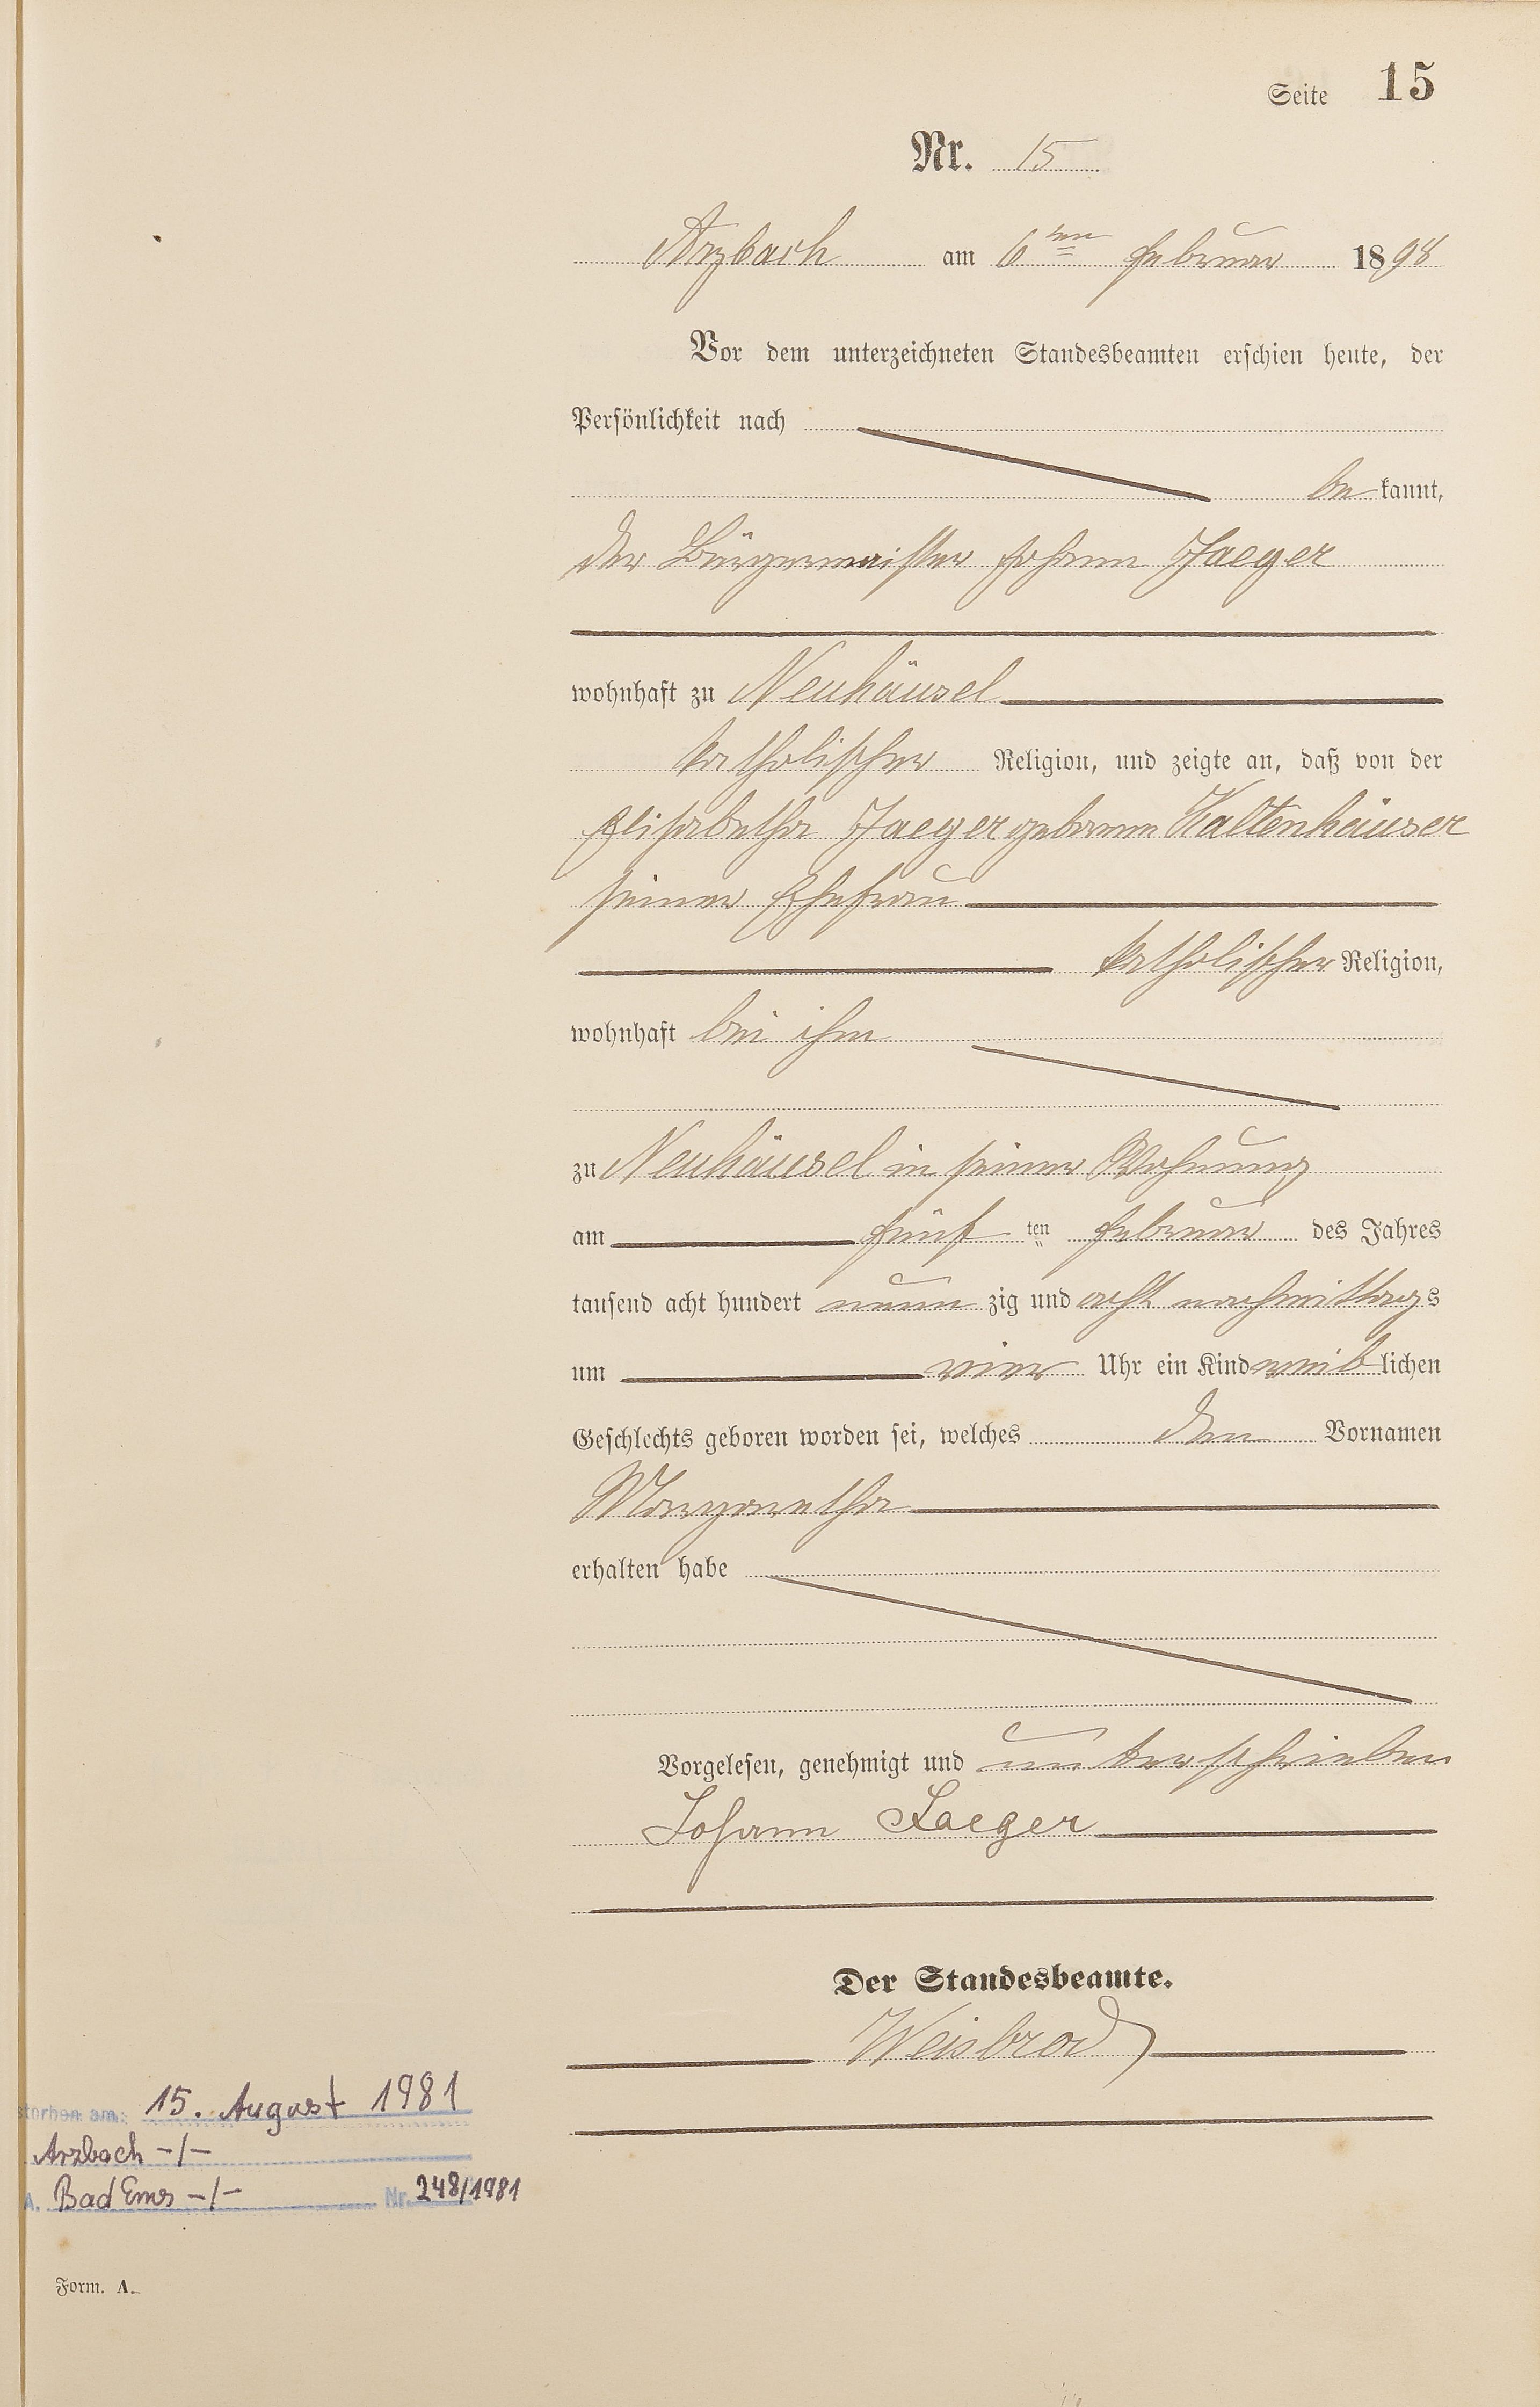 Seite 15
Nr. 15
Arzbach am 6ten Februar 1898
Vor dem unterzeichneten Standesbeamten erschien heute, der
Persönlichkeit nach
be kannt,
der Bürgermeister Johann Jaeger
wohnhaft zu Neuhäusel
katholischer Religion, und zeigte an, daß von der
Elisabetha Jaeger geborene Kaltenhäuser
seiner Ehefrau
katholischer Religion,
wohnhaft bei ihm
zu Neuhäusel in seiner Wohnung
am fünf ten Februar des Jahres
tausend acht hundert neun zig und acht nachmittags
um vier Uhr ein Kind weib lichen
Geschlechts geboren worden sei, welches den Vornamen
Margaretha
erhalten habe
Vorgelesen, genehmigt und unterschrieben
Johann Jaeger
Der Standesbeamte.
Weisbrod
storben am: 15. August 1981
Arzbach -/-
A. Bad Ems -/- Nr. 248/1981
Form. A.